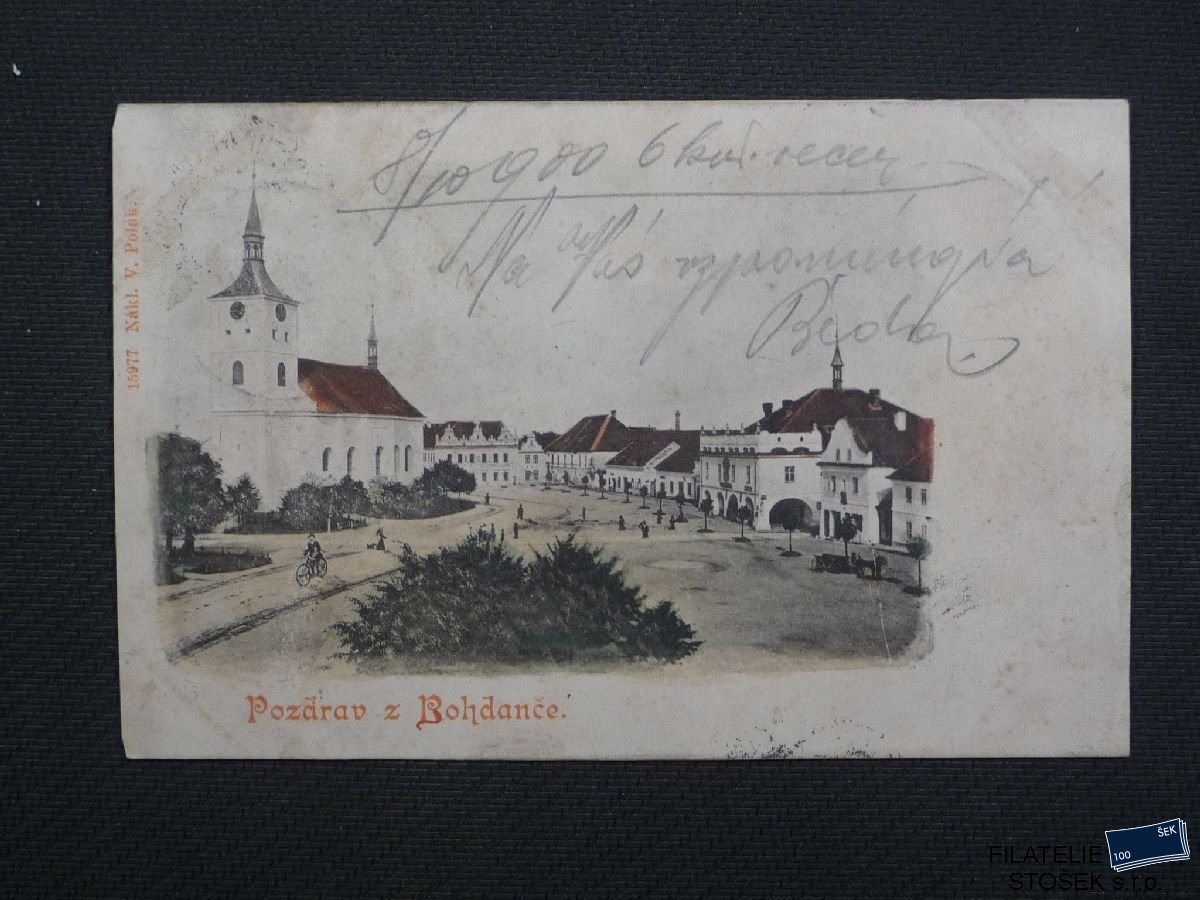 8/10 900 6 hod. večer
Na Vás vzpomíná
Béda
15977 Nákl. V. Polák.
Pozdrav z Bohdanče.
ŠEK
100
FILATELIE
STOŠEK s.r.o.